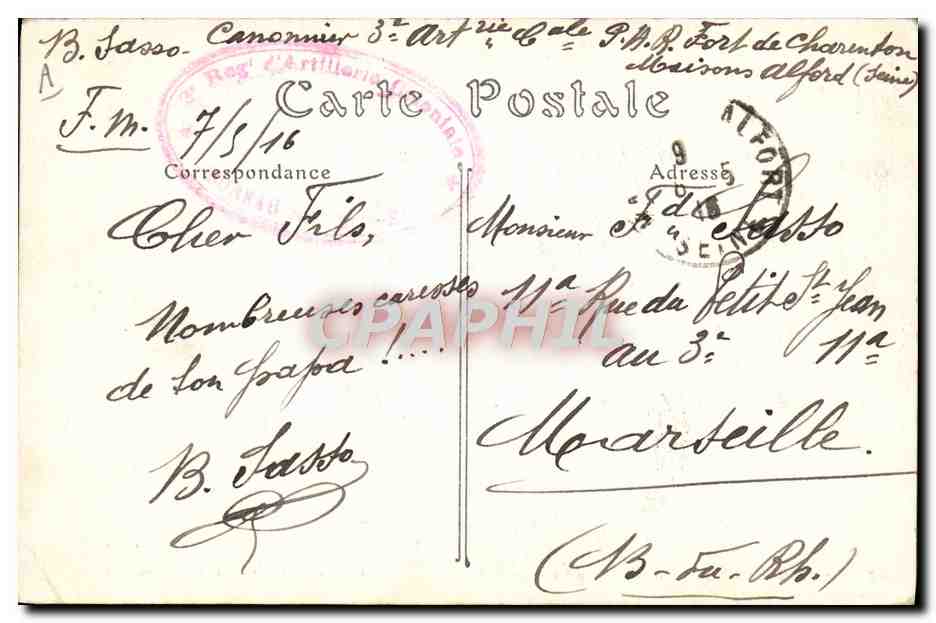 B. Sasso - Canonnier 3e Artrie Cale P.A.R. Fort de Charenton
Maisons Alford (Seine)
A
F.M. 7/5/16
3e Regt d'Artillerie Coloniale
Carte Postale
Correspondance
Cher Fils,
Nombreuses caresses
de ton papa !....
B. Sasso
Adresse
ALFORT
9
5
16
SEINE
Monsieur Fd Sasso
11a Rue du Petit St Jean
au 3e 11a
Marseille.
(B-du-Rh.)
CPAPHIL